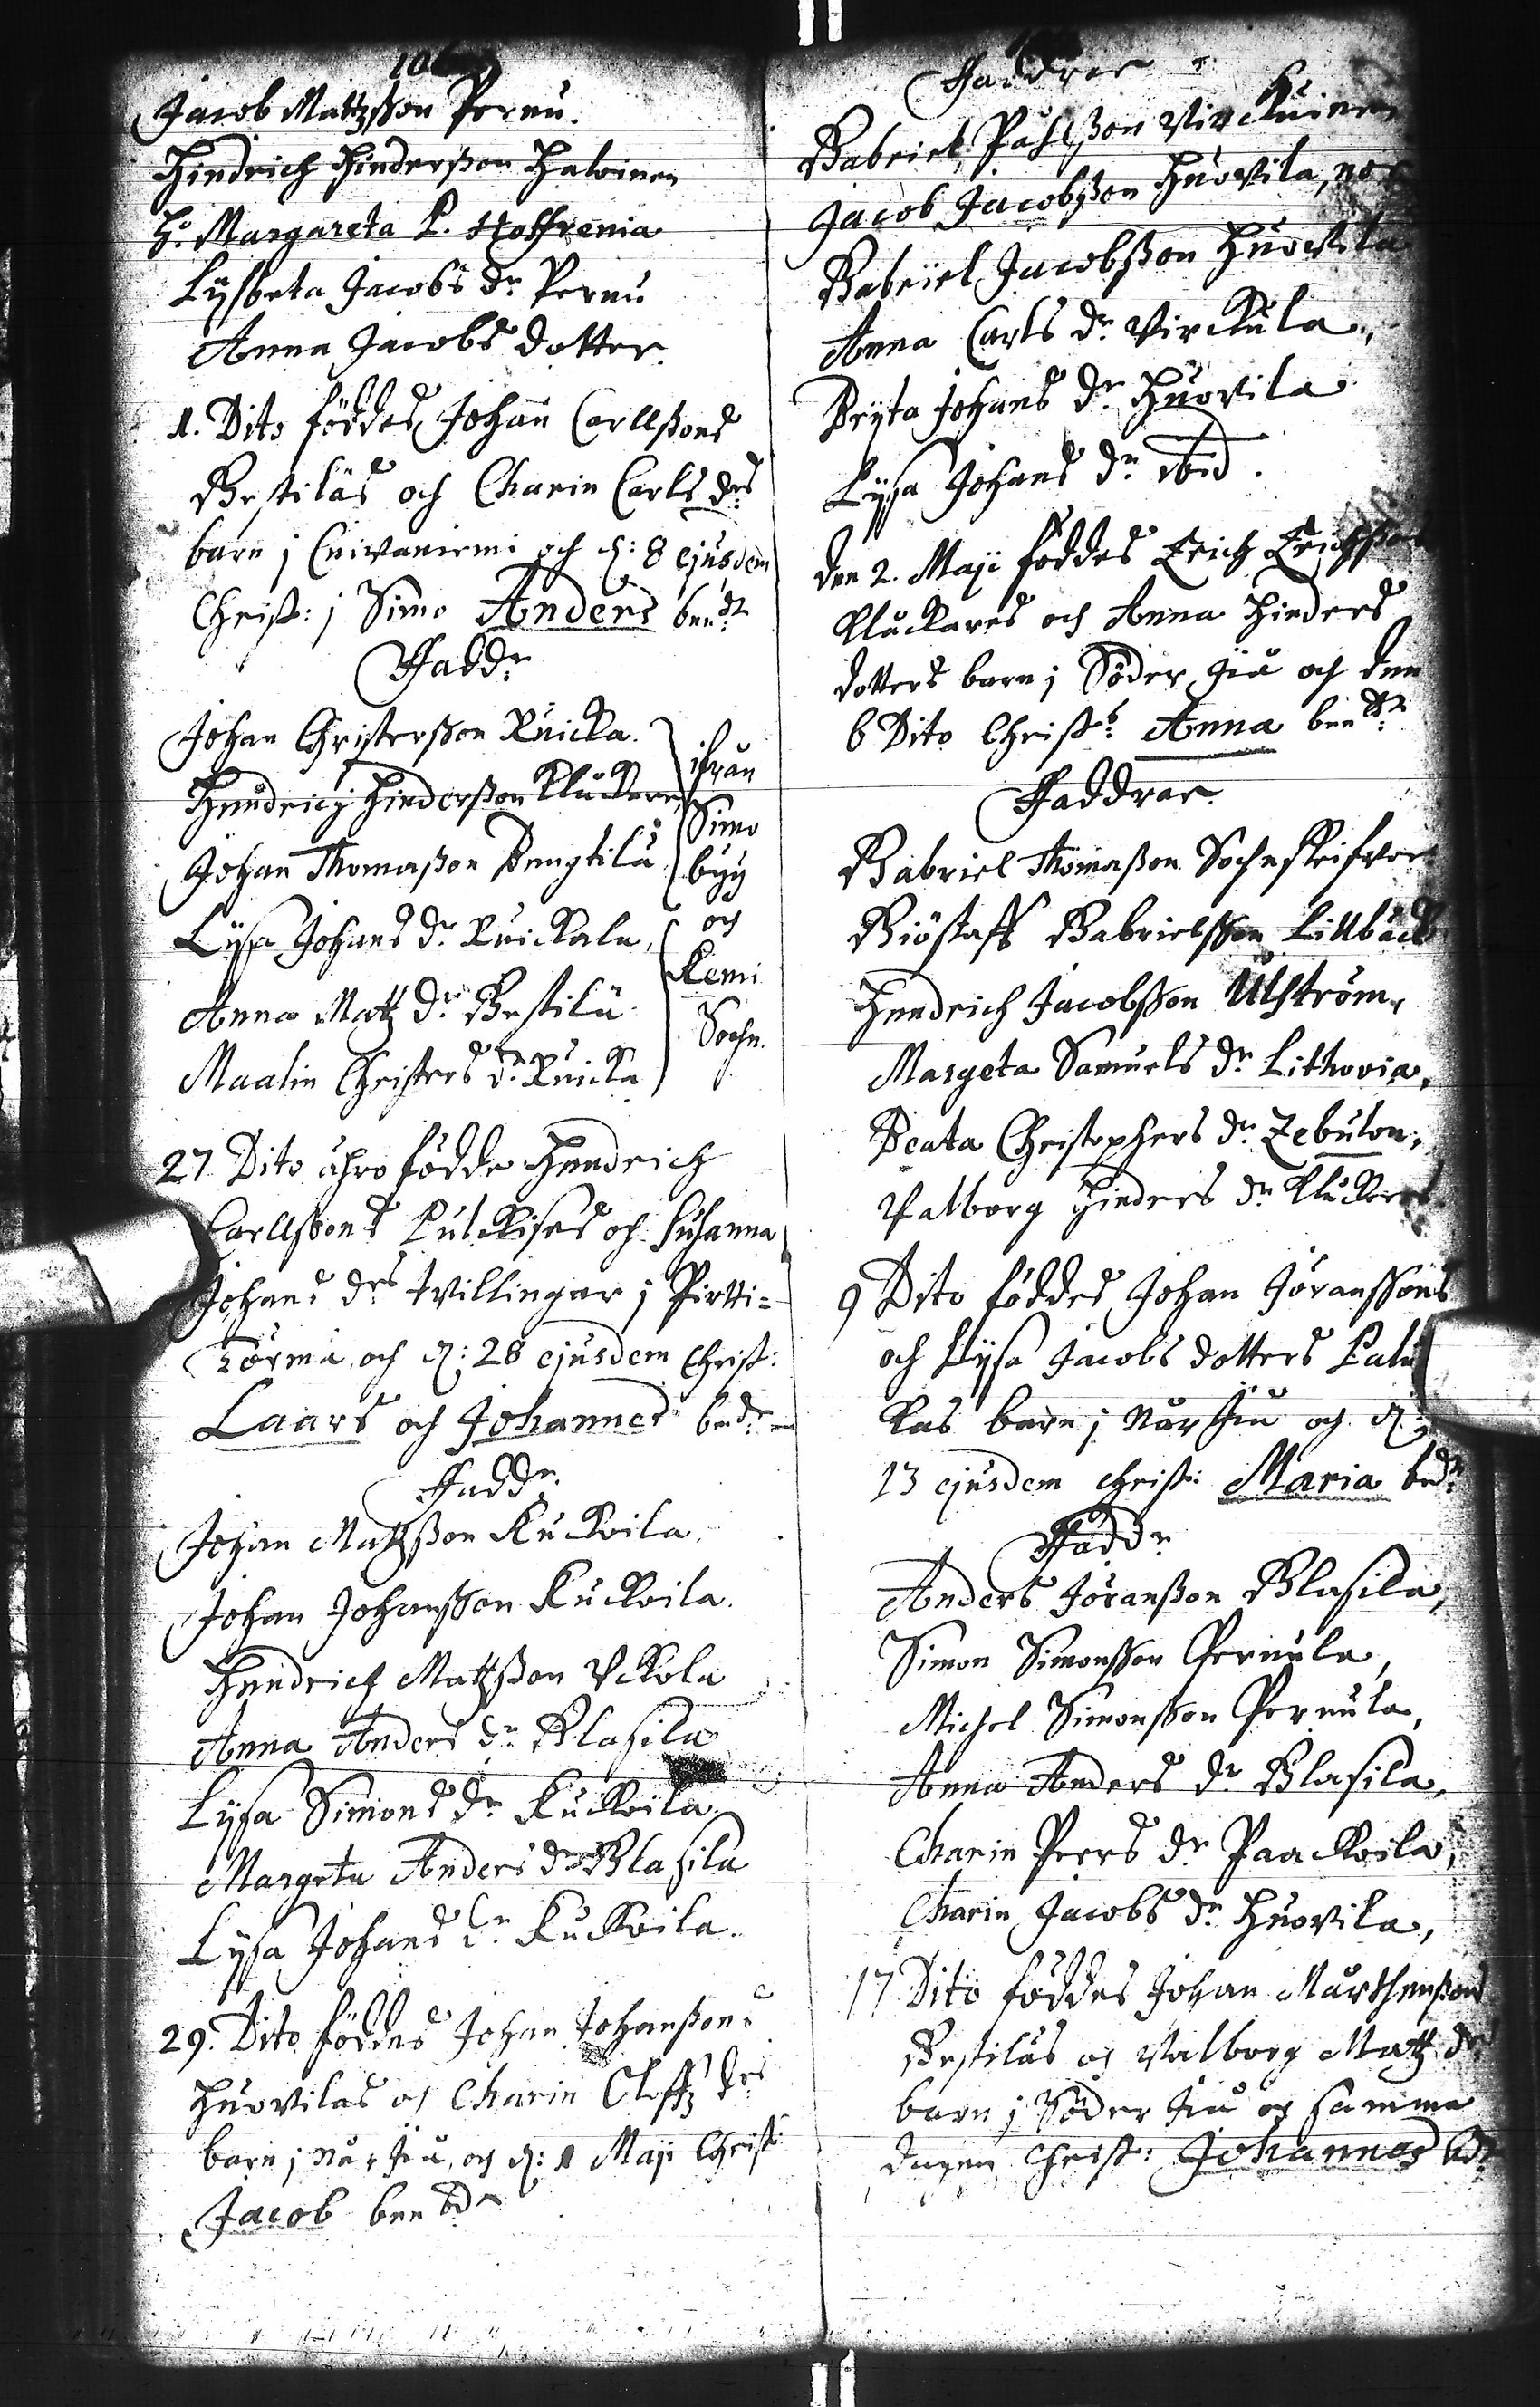 10
Jacob Mattzßon Pernu.
Hindrich Hinderßon Halvinen
H:o Margareta P. Hoffrenia
Lysbeta Jacobs d:r Pernu
Anna Jacobs dotter.
1. Dito föddes Johan Carllßons
Bestiläs och Charin Carls d:rs
barn j Cuivaniemi och d: 8 ejusdem
Christ: j Simo Anders ben:d
Fadd:r
Johan Christerßon Kuicka.
Hendrich Hinderßon Kluckare
Johan Thomaßon Bengtilä
Lysa Johans d:r Kuickala,
Anna Matz d:r Bestilä
Maalin Christers d:r Kuicka
ifrån
Simo
byy
och
Kemi
Sochn.
27 Dito äro födde Hendrich
Carllßons Pulckises och Susanna
Johans d:rs tvillingar j Pirtti-
törmä, och d: 28 ejusdem Christ:
Laars och Johannes bend:
Fadd:r
Johan Mattzßon Kuckoila.
Johan Johanßon Kuckoila.
Hendrich Mattzßon Uckola
Anna Anders d:r Blasila
Lysa Simons d:r Kuckoila.
Margeta Anders d:r Blasila
Lysa Johans d:r Kuckoila.
29. Dito föddes Johan Johanßons
Huovilas och Charin Oloffz d:rs
barn j När Jiu, och d: 1 Maji Christ:
Jacob ben:d
Faddrar
Gabriel Påhlßon Virckuinen
Jacob Jacobßon Huovila,
Gabriel Jacobßon Huovila
Anna Carls d:r Virckula,
Bryta Johans d:r Huovila
Lysa Johans d:r ibid.
den 2. Maji föddes Erich Erichßons
Kluckares och Anna Hinders
dotters barn j Söder Jiu och den
6 Dito Christ: Anna ben:d
Faddrar.
Gabriel Thomaßon Sochnskrifvar
Giöstaff Gabrielßon Lillbäck
Hendrich Jacobßon Ulström,
Margeta Samuels d:r Lithovia,
Beata Christophers d:r Zebulon,
Valborg Hinders d:r Kluckare
9 Dito föddes Johan Jöranßons
och Lysa Jacobs dotters Palu
kas barn j När Jiu och d:
13 ejusdem Christ: Maria bend:
Fadd:r
Anders Jöranßon Blasila,
Simon Simonßon Pernula,
Michel Simonßon Pernula,
Anna Anders d:r Blasila,
Charin Pers d:r Paackoila,
Charin Jacobs d:r Huovila,
17 Dito föddes Johan Mårthenßons
Bestiläs och Valborg Matz d:rs
barn j Söder Jiu och samma
dagen Christ: Johannes bd: